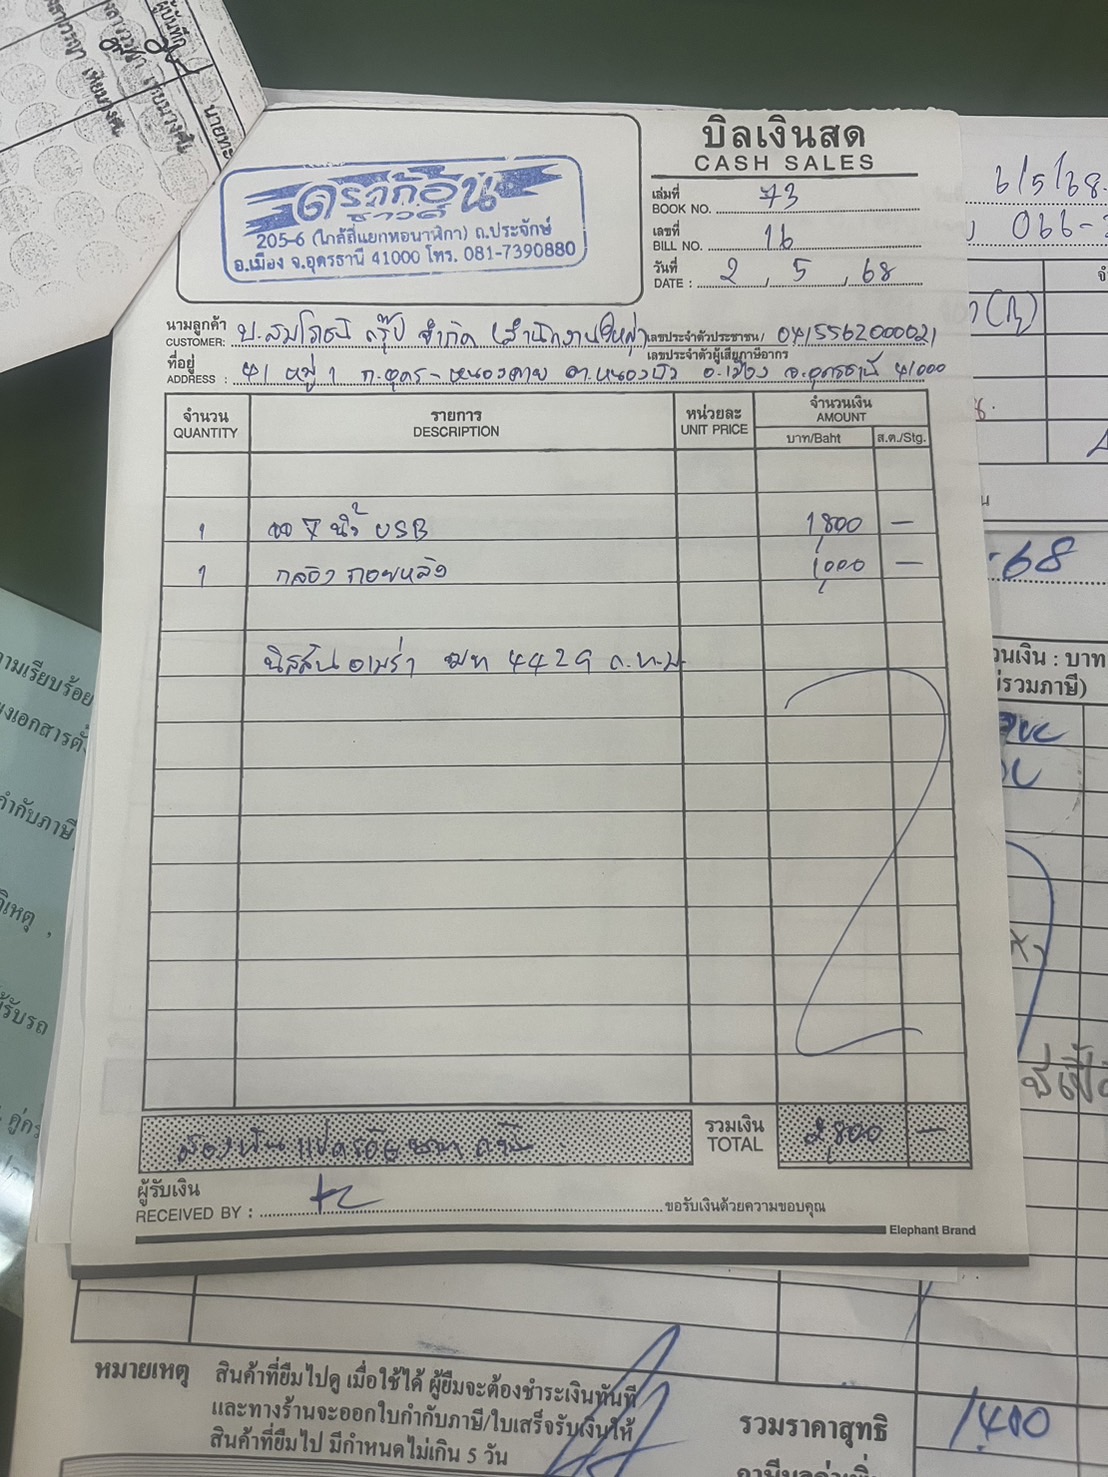 ผู้บันทึก
นายทะ
บิลเงินสด
CASH SALES
ดราก้อน
ซาวด์
205-6 (ใกล้สี่แยกหอนาฬิกา) ถ.ประจักษ์
อ.เมือง จ.อุดรธานี 41000 โทร. 081-7390880
เล่มที่
BOOK NO. 73
เลขที่
BILL NO. 16
วันที่
DATE : 2 , 5 , 68
6/5/68
นามลูกค้า
CUSTOMER: บ.สมโภชน์ กรุ๊ป จำกัด (สำนักงานใหญ่) เลขประจำตัวประชาชน/ 0415562000021
เลขประจำตัวผู้เสียภาษีอากร
ที่อยู่
ADDRESS : 41 หมู่ 1 ถ.อุดร-หนองคาย ต.หนองบัว อ.เมือง จ.อุดรธานี 41000
จำนวน รายการ หน่วยละ จำนวนเงิน
QUANTITY DESCRIPTION UNIT PRICE AMOUNT
บาท/Baht ส.ต./Stg.
1 จอ 7 นิ้ว USB 1,800 —
1 กล้อง ถอยหลัง 1,000 —
นิสสัน อเมร่า 4429 ก.ท.ม.
-68
รวมเงิน
TOTAL 2,800 —
สองพันแปดร้อยบาทถ้วน
ผู้รับเงิน
RECEIVED BY : ขอรับเงินด้วยความขอบคุณ
Elephant Brand
วนเงิน : บาท
รวมภาษี)
ามเรียบร้อย
งเอกสารตั้
กำกับภาษี
ิเหตุ ,
ู้รับรถ
หมายเหตุ สินค้าที่ยืมไปดู เมื่อใช้ได้ ผู้ยืมจะต้องชำระเงินทันที
และทางร้านจะออกใบกำกับภาษี/ใบเสร็จรับเงินให้
สินค้าที่ยืมไป มีกำหนดไม่เกิน 5 วัน
รวมราคาสุทธิ 1,400